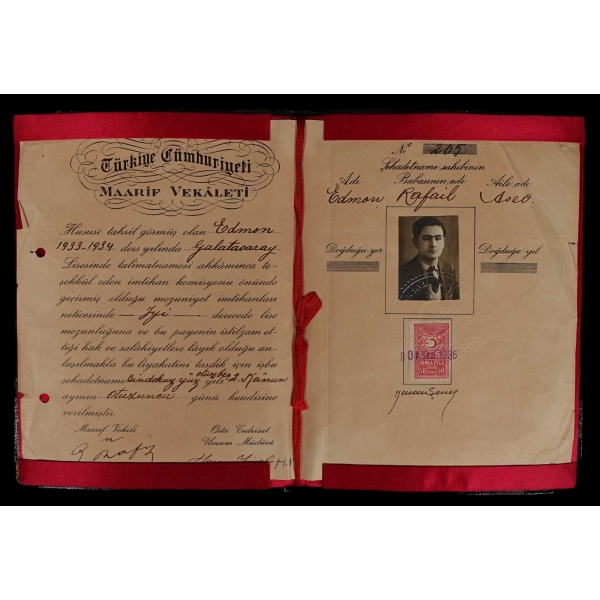 Türkiye Cümhuriyeti
MAARİF VEKÂLETİ
Hususe tahsil görmüş olan Edmon
1933-1934 ders yılında Galatasaray
Lisesinde talimatnamesi ahkâmınca te-
şekkül eden imtihan komisyonu önünde
geçirmiş olduğu mezuniyet imtihanları
neticesinde İyi derecede lise
mezunluğuna ve bu payenin istilzam et-
tiği hak ve salâhiyetlere lâyık olduğu an-
laşılmakla bu liyakatini tasdik için işbu
şehadetname bindokuz yüz otuzbeş yılı 2. Kanun
ayının otuzuncu günü kendisine
verilmiştir.
Maarif Vekili
Orta Tedrisat
Umum Müdürü
No 205
Şehadetname sahibinin
Adı Babasının adı Aile adı
Edmon Rafail Aseo
Doğduğu yer Doğduğu yıl
50 50